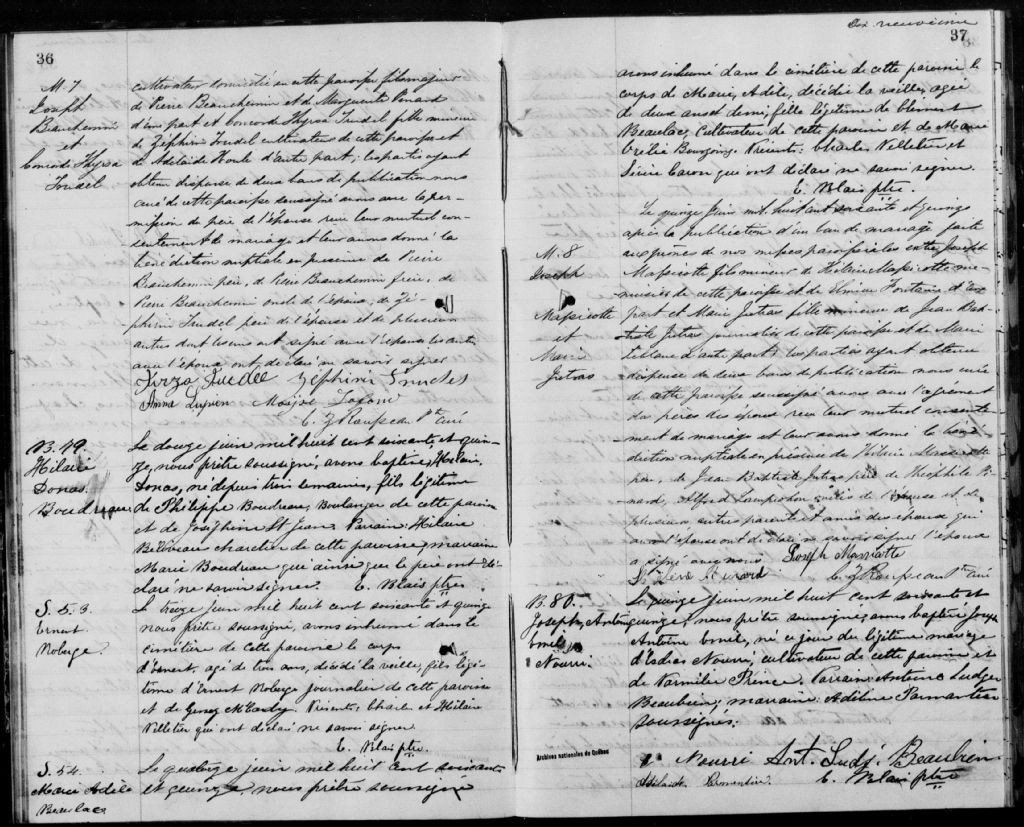 36
M. 7
Joseph
Beauchemin
et
Concorde Thyrsa
Trudel
cultivateur domicilié en cette paroisse fils majeur
de Pierre Beauchemin et de Marguerite Penard
d'une part et Concorde Thyrsa Trudel fille mineure
de Zéphirin Trudel cultivateur de cette paroisse et
de Adelaide Houle d'autre part; les parties ayant
obtenu dispense de deux bans de publication nous
curé de cette paroisse soussigné avons avec la per-
mission du père de l'épouse reçu leur mutuel con-
sentement de mariage et leur avons donné la
bénédiction nuptiale en présence de Pierre
Beauchemin père, de Pierre Beauchemin frère, de
Pierre Beauchemin oncle de l'époux, de Zé-
phirin Trudel père de l'épouse et de plusieurs
autres dont les uns ont signé avec l'épouse les autres
avec l'époux ont déclaré ne savoir signer
Tirza Trudel Zéphirin Trudel
Anna Lupien Moïse
C. Z Rousseau Ptre Curé
B. 79.
Hilaire
Donas
Boudreau
Le douze juin mil huit cent soixante et quin-
ze, nous prêtre soussigné, avons baptisé, Hilaire,
Donas, né depuis trois semaines, fils légitime
de Philippe Boudreau, Boulanger de cette paroisse
et de Joséphine St Jean. Parrain: Hilaire
Beliveau charretier de cette paroisse, marraine
Marie Boudreau que ainsi que le père ont dé-
claré ne savoir signer. E. Blais ptre
S. 53.
Ernest
Roberge
Le treize juin mil huit cent soixante et quinze
nous prêtre soussigné, avons inhumé dans le
cimetière de cette paroisse le corps
d'Ernest, agé de trois ans, décédé la veille, fils légi-
time d'Ernest Roberge journalier de cette paroisse
et de McCarty. Présents: Charles et Hilaire
Pelletier qui ont déclaré ne savoir signer
E. Blais ptre.
S. 54.
Marie Adèle
Beaulac
Le quatorze juin mil huit cent soixante
et quinze, nous prêtre soussigné
Dix neuvième
37
avons inhumé dans le cimetière de cette paroisse le
corps de Marie, Adèle, décédée la veille, agée
de deux ans et demi, fille légitime de Clément
Beaulac, Cultivateur de cette paroisse et de Marie
Orélie Bourgoing. Présents: Charles Pelletier, et
Caron qui ont déclaré ne savoir signer.
E. Blais ptre.
M. 8
Joseph
Massicotte
et
Marie
Jutras
Le quinze Juin mil huit cent soixante et quinze
après la publication d'un ban de mariage faite
aux prônes de nos messes paroissiales entre Joseph
Massicotte fils mineur de Hilaire Massicotte me-
nuisier de cette paroisse et de Fontaine d'une
part et Marie Jutras fille mineure de Jean Bap-
tiste Jutras journalier de cette paroisse et de Marie
Leblanc d'autre part; les parties ayant obtenu
dispense de deux bans de publication nous curé
de cette paroisse soussigné avons avec l'agrément
des pères des époux reçu leur mutuel consente-
ment de mariage et leur avons donné la béné-
diction nuptiale en présence de Hilaire Massicotte
père, de Jean Baptiste Jutras père de Théophile
Alfred Lamposhon de l'épouse et de
plusieurs autres parents et amis des époux qui
avec l'épouse ont déclaré ne savoir signer l'époux
a signé avec nous Joseph Massicotte
C. Z Rousseau Ptre Curé
B. 80.
Joseph, Antoine
Nourri.
Le quinze juin mil huit cent soixante et
quinze, nous prêtre soussigné, avons baptisé Joseph
Antoine né ce jour du légitime mariage
d'Esdras Nourri, cultivateur de cette paroisse et
de Prince. Parrain: Antoine Ludger
Beaubien; marraine: Adeline Parmantier
soussignés:
Nourri Ant. Ludg. Beaubien
E. Blais ptre
Archives nationales du Québec